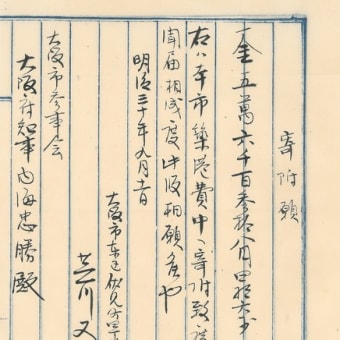 寄附願
一金五萬六千百参拾八円四拾六才
右ハ本市築港費中ヘ寄附致度
聞届相成度此段相願候也
明治三十年九月
大阪市東区伏見町四丁
芝川又
大阪市参事会
大阪府知事内海忠勝殿